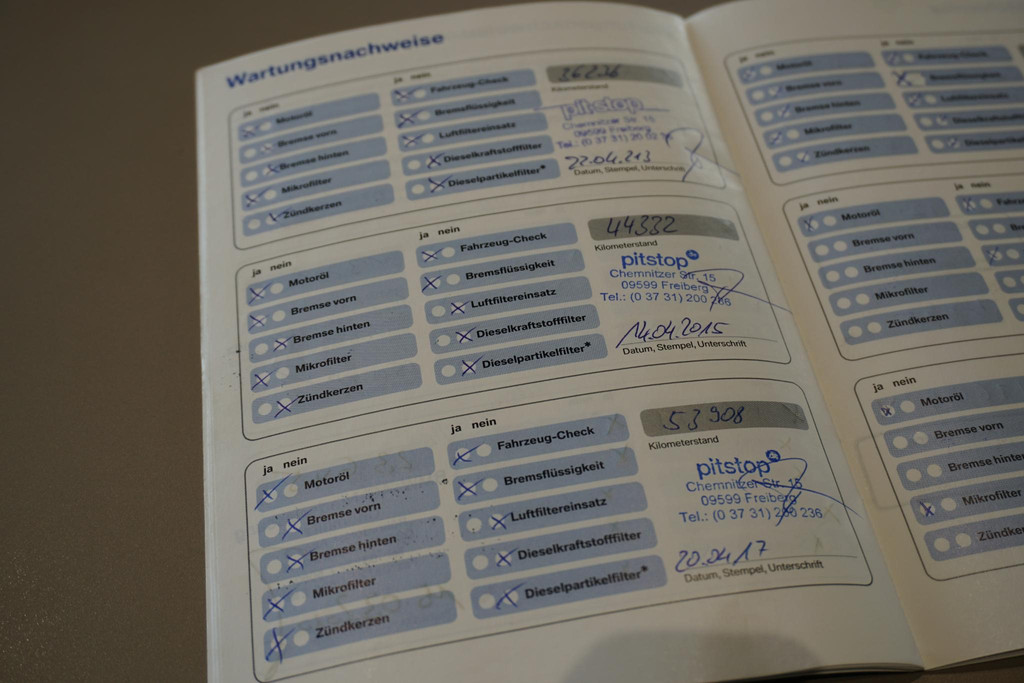 Wartungsnachweise
ja nein
Motoröl
Bremse vorn
Bremse hinten
Mikrofilter
Zündkerzen
ja nein
Fahrzeug-Check
Bremsflüssigkeit
Luftfiltereinsatz
Dieselkraftstofffilter
Dieselpartikelfilter*
36236
Kilometerstand
pitstop
Chemnitzer Str. 15
09599 Freiberg
Tel.: (0 37 31) 20 02
Datum, Stempel, Unterschrift
ja nein
Motoröl
Bremse vorn
Bremse hinten
Mikrofilter
Zündkerzen
ja nein
Fahrzeug-Check
Bremsflüssigkeit
Luftfiltereinsatz
Dieselkraftstofffilter
Dieselpartikelfilter*
44332
Kilometerstand
pitstop
Chemnitzer Str. 15
09599 Freiberg
Tel.: (0 37 31) 200 236
14.04.2015
Datum, Stempel, Unterschrift
ja nein
Motoröl
Bremse vorn
Bremse hinten
Mikrofilter
Zündkerzen
ja nein
Fahrzeug-Check
Bremsflüssigkeit
Luftfiltereinsatz
Dieselkraftstofffilter
Dieselpartikelfilter*
53908
Kilometerstand
pitstop
Chemnitzer Str. 15
09599 Freiberg
Tel.: (0 37 31) 200 236
20.04.17
Datum, Stempel, Unterschrift
ja nein
Motoröl
Bremse vorn
Bremse hinten
Mikrofilter
Zündkerzen
ja nein
Fahrzeug-Check
ja nein
Motoröl
Bremse vorn
Bremse hinten
Mikrofilter
Zündkerzen
ja nein
ja nein
Motoröl
Bremse vorn
Bremse hinten
Mikrofilter